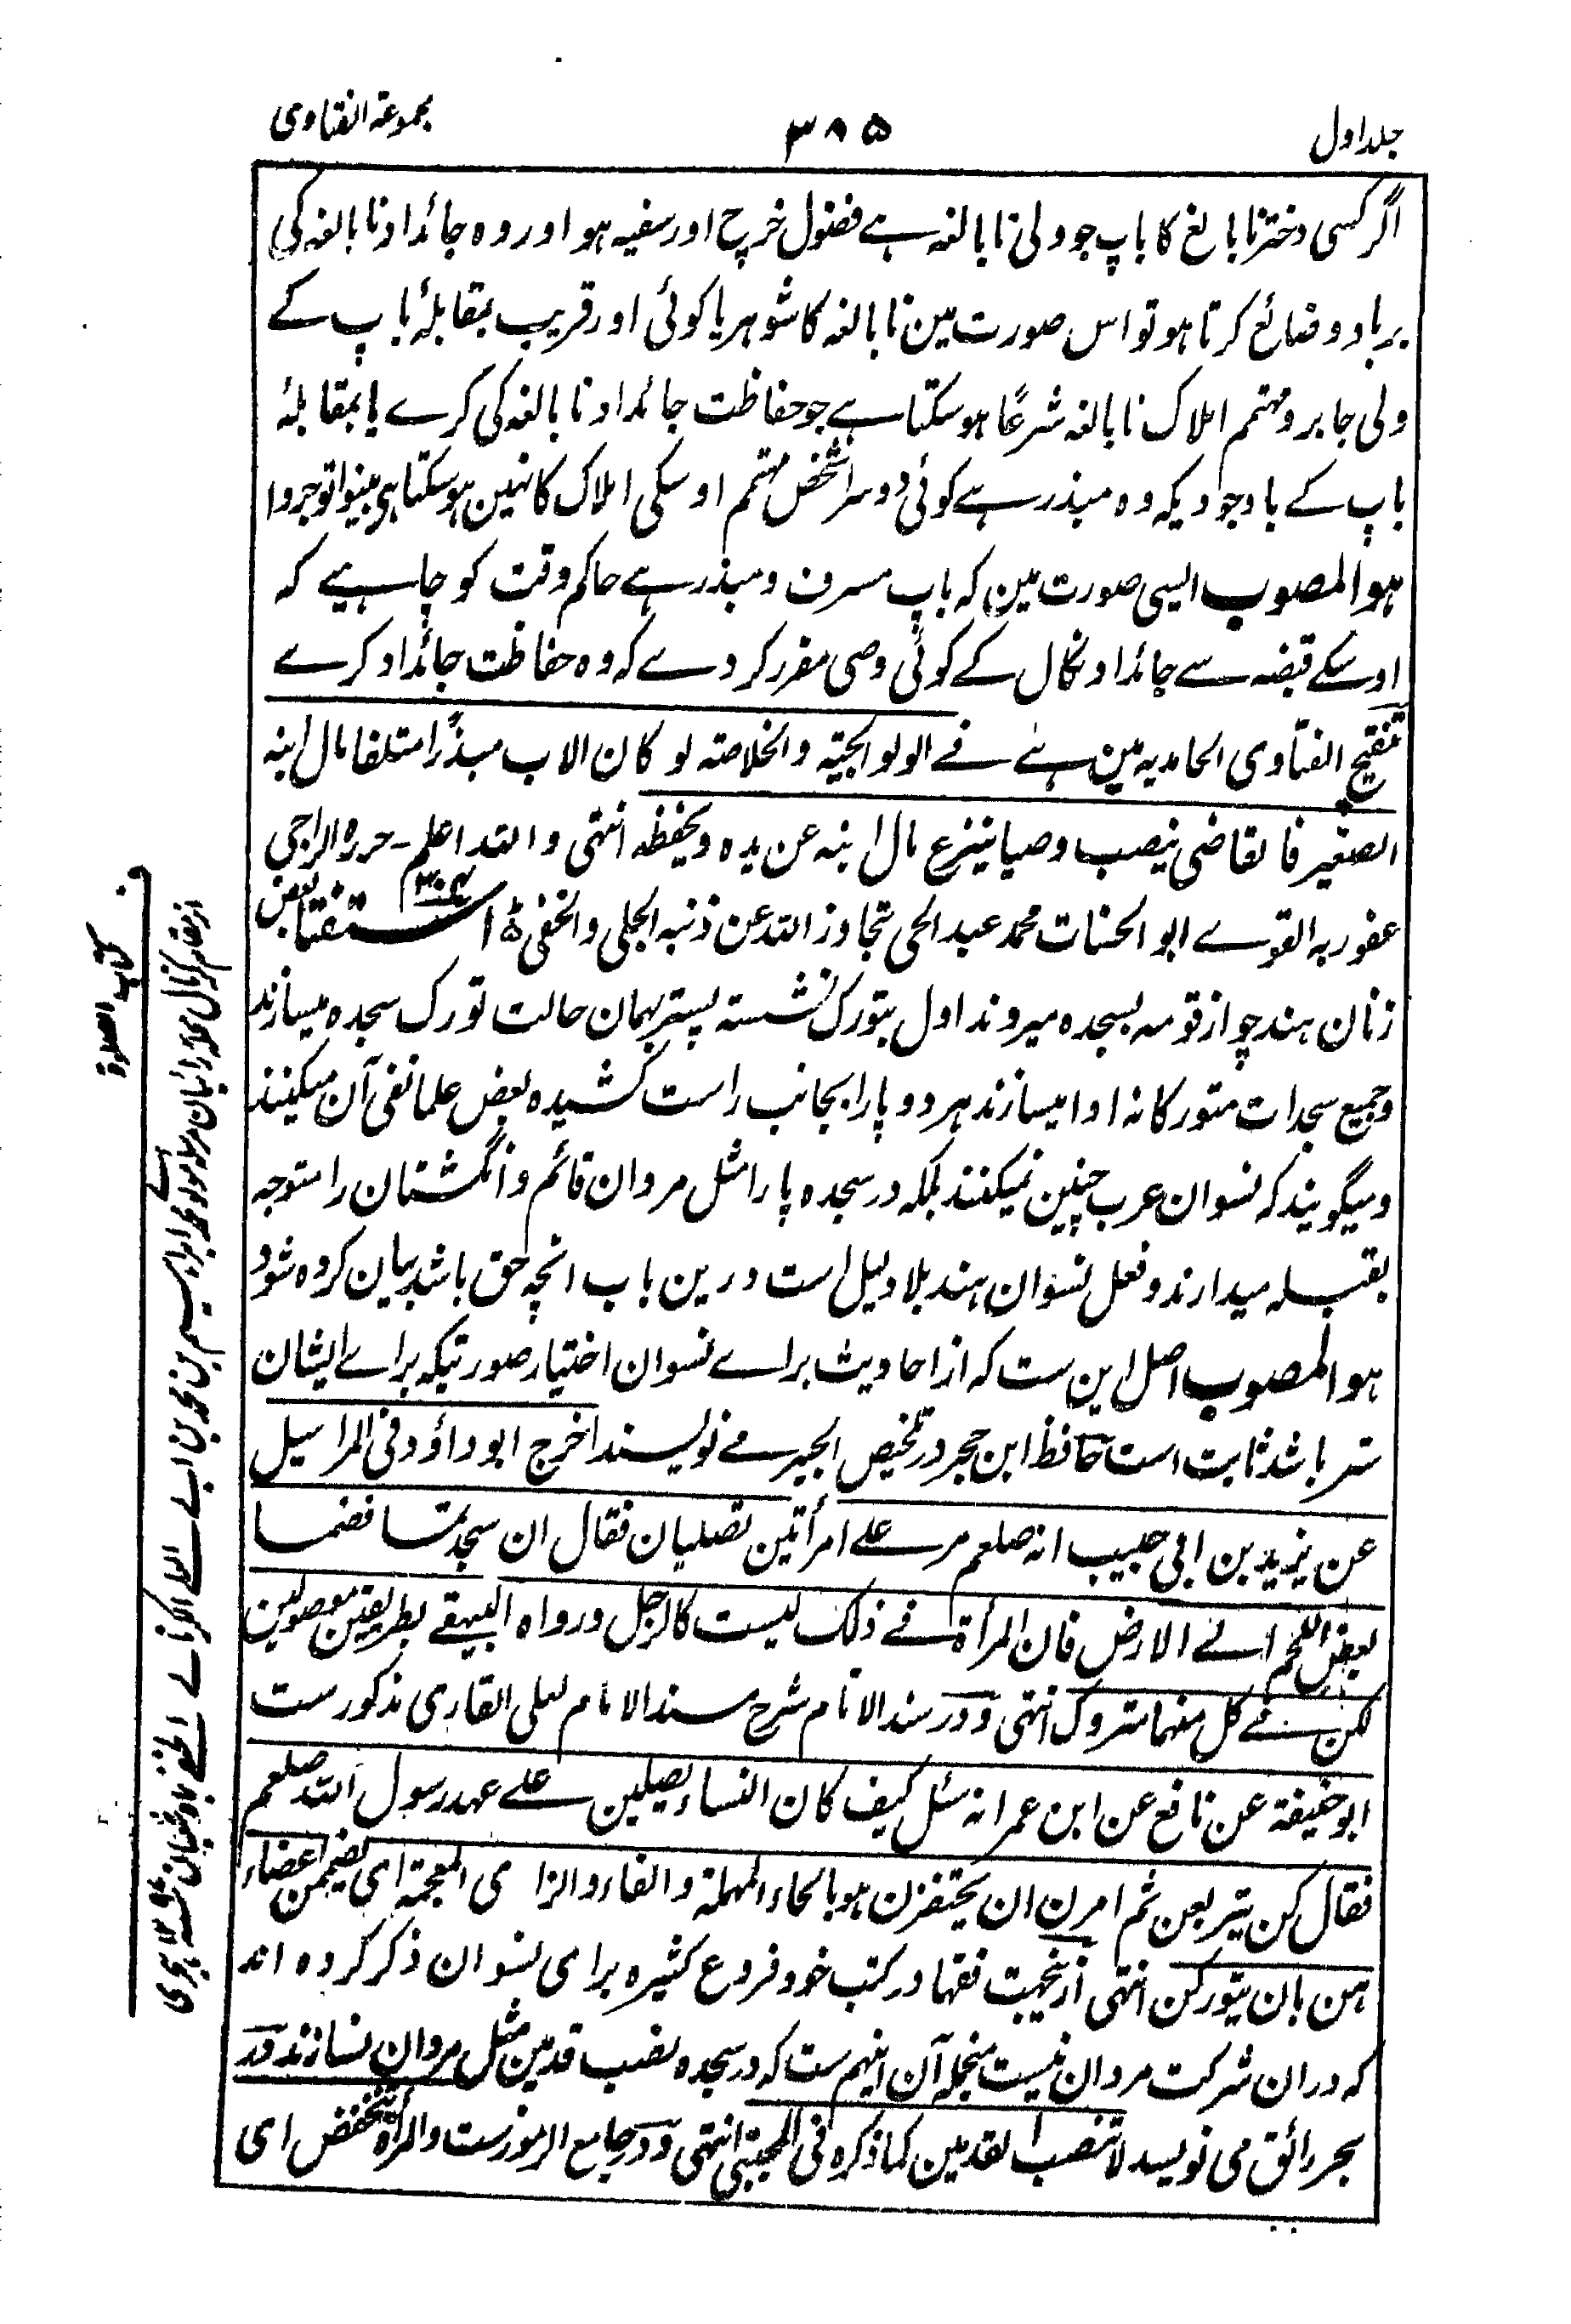 جلد اول
۳۸۵
مجموعۃ الفتاوی
اگر کسی دختر نابالغ کا باپ جو ولی نابالغہ ہے فضول خرچ اور سفیہ ہو اور وہ جائداد نابالغہ کی
برباد و ضائع کرتا ہو تو اس صورت مین نابالغہ کا شوہر یا کوئی اور قریب بمقابلۂ باپ کے
ولی جابر و مہتمم املاک نابالغہ شرعًا ہو سکتا ہے جو حفاظت جائداد نابالغہ کی کرے یا بمقابلۂ
باپ کے باوجودیکہ وہ مبذر ہے کوئی دوسرا شخص مہتمم اوسکی املاک کا نہین ہو سکتا ہی بینوا توجروا
ہو المصوب ایسی صورت مین کہ باپ مسرف و مبذر ہے حاکم وقت کو چاہیے کہ
اوسکے قبضہ سے جائداد نکال کے کوئی وصی مقرر کر دے کہ وہ حفاظت جائداد کرے
تنقیح الفتاوی الحامدیہ مین ہے فے الولوالجیۃ والخلاصۃ لو کان الاب مبذرًا متلفا مال ابنہ
الصغیر فالقاضی ینصب وصیا ینزع مال ابنہ عن یدہ ویحفظہ انتہی واللہ اعلم۔ حررہ الراجی
عفو ربہ القوے ابو الحسنات محمد عبد الحی تجاوز اللہ عن ذنبہ الجلی والخفی استفتا بعض
زنان ہند چو از قومہ بسجدہ میروند اول بتورک نشستہ پستر بہمان حالت تورک سجدہ میسازند
وجمیع سجدات متورکانہ ادا میسازند ہر دو پا را بجانب راست کشیدہ بعض علما نفی آن میکنند
و میگویند کہ نسوان عرب چنین نمیکنند بلکہ در سجدہ پا را مثل مردان قائم و انگشتان را متوجہ
بقبلہ میدارند و فعل نسوان ہند بلا دلیل است درین باب انچہ حق باشد بیان کردہ شود
ہو المصوب اصل این ست کہ از احادیث براے نسوان اختیار صورتیکہ براے ایشان
ستر باشد ثابت است حافظ ابن حجر در تلخیص الحبیر مے نویسند اخرج ابو داؤد فی المراسیل
عن یزید بن ابی حبیب انہ صلعم مر علے امرأتین تصلیان فقال ان سجدتما فضما
بعض اللحم الے الارض فان المرأۃ فے ذلک لیست کالرجل ورواہ البیہقے بطریقین موصولین
لکن فے کل منہما متروک انتہی و در سند الانام شرح مسند الامام لعلی القاری مذکورست
ابو حنیفۃ عن نافع عن ابن عمر انہ سئل کیف کان النساء یصلین علے عہد رسول اللہ صلعم
فقال کن یتربعن ثم امرن ان یحتفزن ہو بالحاء المہملۃ والفاء والزای المعجمۃ ای یضممن اعضاء
ہن بان یتورکن انتہی ازینجہت فقہا در کتب خود فروع کثیرہ برای نسوان ذکر کردہ اند
کہ دران شرکت مردان نیست منجملہ آن اینہم ست کہ در سجدہ نصب قدمین مثل مردان نسازند و در
بحر رائق می نویسد لا تنصب القدمین کما ذکرہ فی المجتبی انتہی و در جامع الرموزست والمرأۃ تنخفض ای
کتاب الصلوۃ